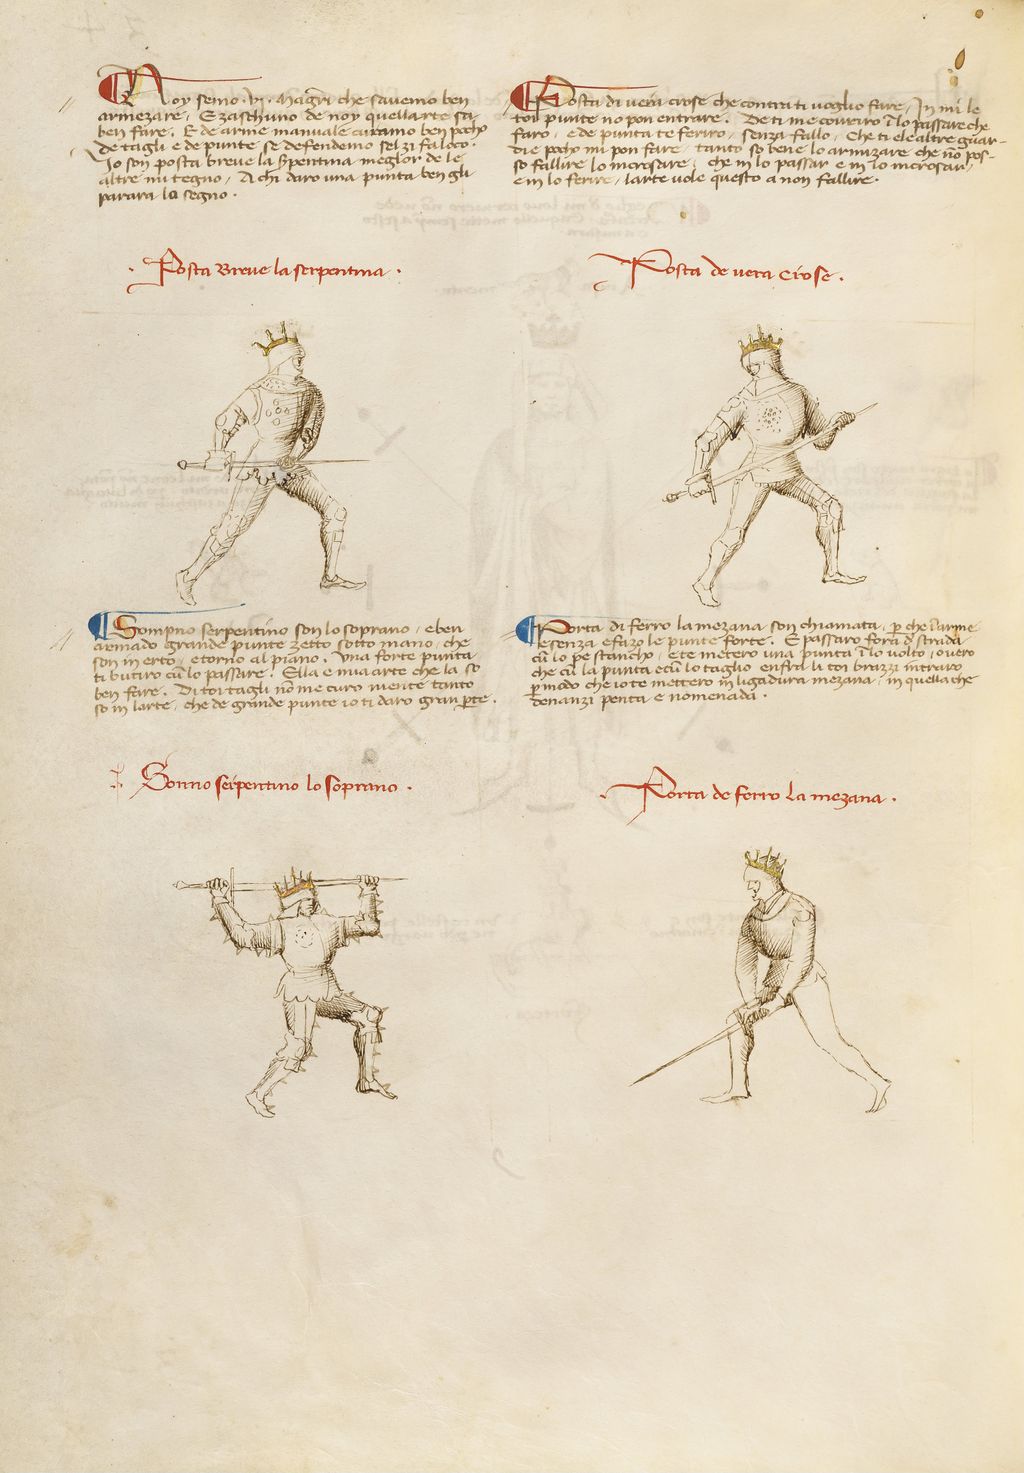 Noy semo .vj. Magistri che savemo ben
armezare, E zaschuno de noy quellarte sa
ben fare. E de arme manuale curamo ben pocho
de tagli e de punte se defendemo sel zi fa loco.
Io son posta breve la serpentina meglor de le
altre mi tegno, A chi daro una punta ben gli
parara lo segno.
Posta di vera crose che contra ti voglio fare, In mi le
toi punte no pon entrare. De ti me covriro in lo passare che
faro, e de punta te feriro, senza fallo, Che ti e le altre guar-
die pocho mi pon fare, tanto so bene lo armizare che no pos-
so fallire lo incrosare, che in lo passar e in lo incrosar,
e in lo ferire, larte vole questo a non fallire.
Posta Breve la serpentina.
Posta de vera crose.
Sompno serpentino son lo soprano, e ben
armado grande punte zetto sotto mano, che
son in erto, e torno al piano. Una forte punta
ti butiro cum lo passare. Ella e mia arte che la so
ben fare. Di toi tagli non me curo niente tanto
so in larte, che de grande punte io ti daro gran parte.
Porta di ferro la mezana son chiamata, per che l'arme
e senza efazo le punte forte. E passaro fora de strada
cum lo pe stancho, e te metero una punta in lo volto, overo
che cum la punta e cum lo taglio enfra li toi brazzi intraro
per modo che io te mettero in ligadura mezana, in quella che
denanzi penta e nomenada.
Sonno serpentino lo soprano.
Porta de ferro la mezana.